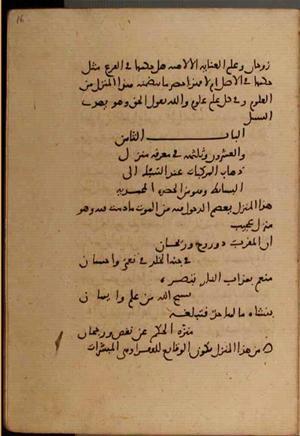 زوجان وعلم العناية الالاهية هل حكمها في الفرع مثل
حكمها في الاصل ام لا هذا حصر ما يتضمنه هذا المنزل من
العلوم وفي كل علم علوم والله يقول الحق وهو يهدي
السبيل
الباب الثامن
والعشرون وثلثمئة في معرفة منزل
ذهاب المركبات عند السبك الى
البسائط وهو من الحضرة المحمدية
هذا المنزل يعصم الدخول فيه من الموت ما دمت فيه وهو
منزل عجيب
ان المقرب ذو روح وريحان
في جنة الخلد في نعمى واحسان
منعم بعذاب النار تبصره
نسيج الله من علم وايمان
منزه الحكم عن نقص ورجحان
من هذا المنزل تكون الوقائع للفقراء وهي المبشرات